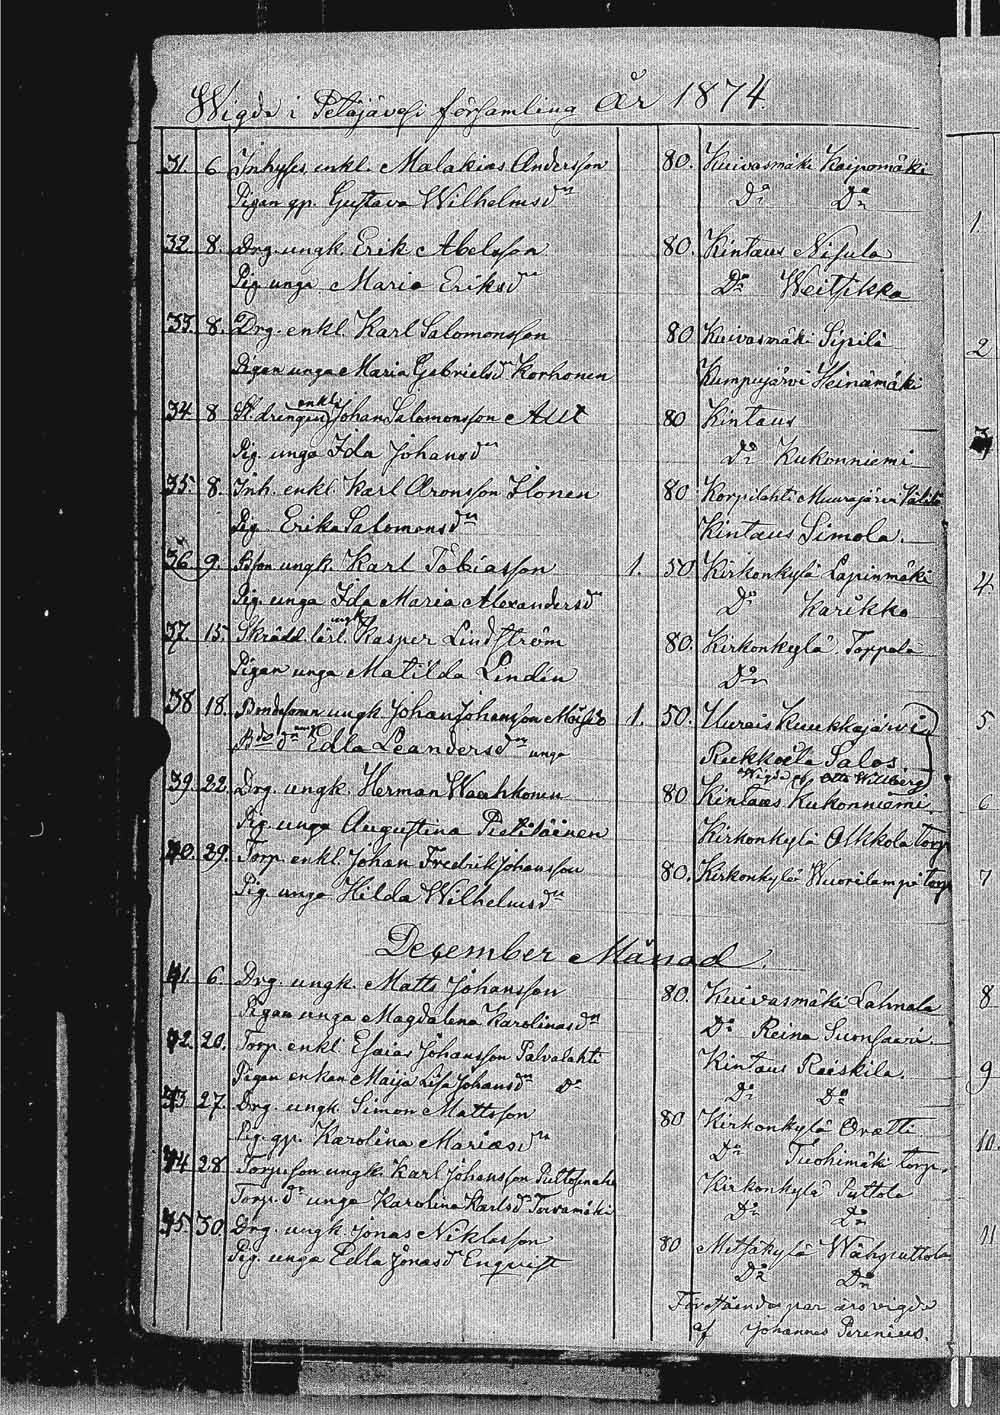 Wigde i Petäjävesi församling År 1874.
31. 6 Inhyses enkl. Malakias Andersson 80. Kuivasmäki Koipomäki
Pigan gp. Gustava Wilhelmsdr Do Do
32 8. Drg. ungk. Erik Abelsson 80. Kintaus Nisula
Pig. unga Maria Eriksdr Do Weitsikko
33. 8. Drg. enkl. Karl Salomonsson 80 Kuivasmäki Sipilä
Pigan unga Maria Gabrielsdr Korhonen Kumpujärvi Heinämäki
34. 8 St. drengen enkl. Johan Salomonsson Alit 80 Kintaus
Pig. unga Ida Johansdr Do Kukonniemi
35. 8. Inh. enkl. Karl Aronsson Ilonen 80 Korpilahti Muurajärvi
Pig. Erika Salomonsdr Kintaus Simola.
36 9. Bson ungk. Karl Tobiasson 1. 50 Kirkonkylä Lapinmäki
Pig. unga Ida Maria Alexandersdr Do Karikko
37. 15. Skrädd. lärl. ungk. Kasper Lindström 80. Kirkonkylä Torppala
Pigan unga Matilda Lindén Do
38 18. Bondesonen ungk. Johan Johansson 1. 50. Uurais Kuukkajärvi
Bdr Edla Leandersdr unga Salos
Wigde af Otto Willberg
39. 22. Drg. ungk. Herman Waahkonen 80 Kintaus Kukonniemi
Pig. unga Augustina Pietiläinen Kirkonkylä Oskkola torp
40. 29. Torp. enkl. Johan Fredrik Johansson 80. Kirkonkylä Wuorilampi torp
Pig. unga Hilda Wilhelmsdr
December Månad.
41. 6. Drg. ungk. Matts Johansson 80. Kuivasmäki Lahnala
Pigan unga Magdalena Karolinasdr Do Reina
42. 20. Torp. enkl. Esaias Johansson Palvalahti Kintaus Raiskila.
Pigan enkan Maija Lisa Johansdr Do Do Do
43 27. Drg. ungk. Simon Mattsson 80 Kirkonkylä
Pig. gp. Karolina Mariasdr Do Tuohimäki torp.
44 28. Torpson ungk. Karl Johansson Kirkonkylä Puttola
Torp. dr unga Karolina Karlsdr Toivamäki Do Do
45. 30. Drg. ungk. Jonas Niklasson 80 Metsäkylä Wähäputtola
Pig. unga Edla Jonasdr Enqvist Do Do
Förestående par äro vigde
af Johannes Perenius.
1.
2
3
4.
5
6
7
8
9
10.
11